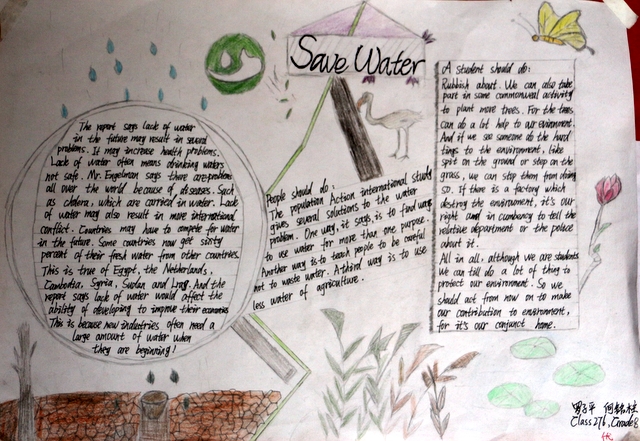 Save Water
The report says lack of water
in the future may result in several
problems. It may increase health problems.
Lack of water often means drinking waters
not safe. Mr. Engelman says there are problems
all over the world because of diseases. Such
as cholera, which are carried in water. Lack
of water may also result in more international
conflict. Countries may have to compete for water
in the future. Some countries now get sixty
percent of their fresh water from other countries.
This is true of Egypt, the Netherlands,
Cambodia, Syria, Sudan and Iraq. And the
report says lack of water would affect the
ability of developing to improve their economies
This is because new industries often need a
large amount of water when
they are beginning!
People should do:
The population Action international study
gives several solutions to the water
problem. One way, it says, is to find ways
to use water for more than one purpose.
Another way is to teach people to be careful
not to waste water. A third way is to use
less water of agriculture.
A student should do:
Rubbish about. We can also take
part in some commonweal activity
to plant more trees. For the trees
can do a lot help to our environment.
And if we see someone do the hard
tings to the environment, like
spit on the ground or step on the
grass, we can stop them from doing
so. If there is a factory which
destroy the enviroument, it's our
right and in cumbency to tell the
relative department or the police
about it.
All in all, although we are students
We can till do a lot of thing to
protect our environment. So we
should act from now on to make
our contribution to environment,
for it's our conjunct home.
Class 276, Grade 8